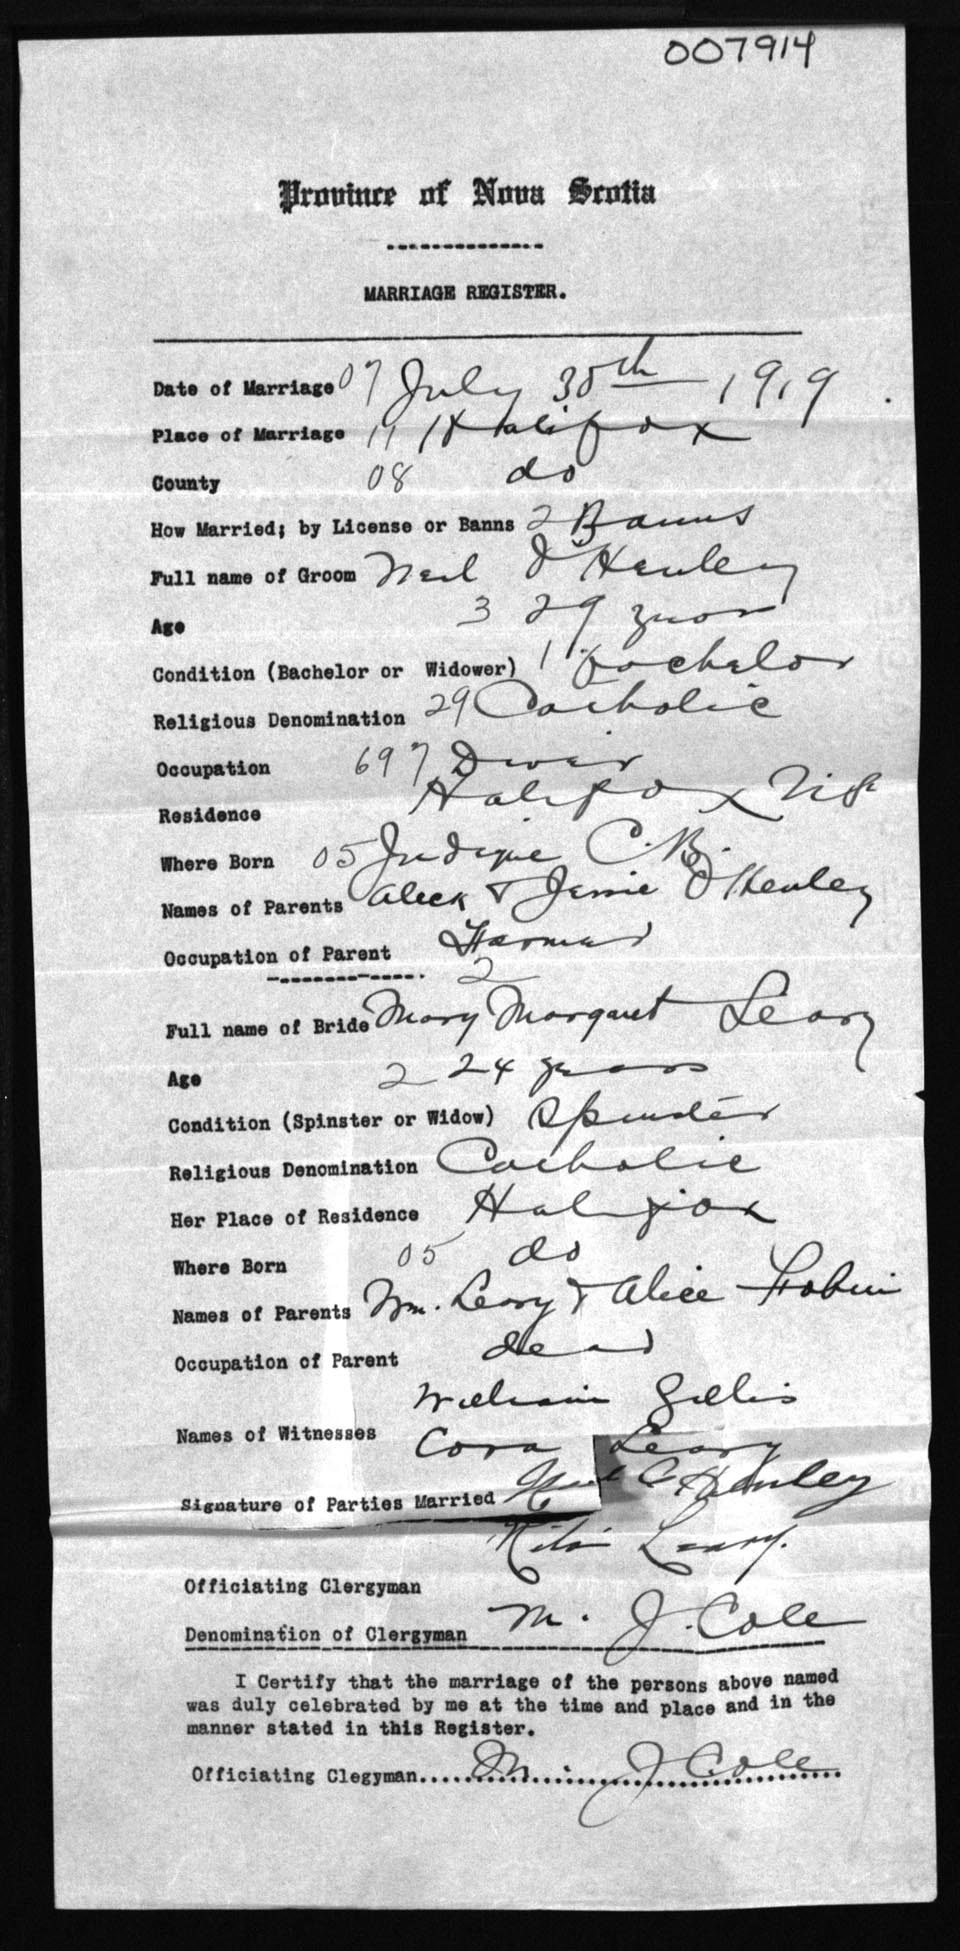 007914
Province of Nova Scotia
MARRIAGE REGISTER.
Date of Marriage 07 July 30th 1919
Place of Marriage 11 Halifax
County 08 do
How Married; by License or Banns 2 Banns
Full name of Groom Neil O'Henley
Age 3 29 years
Condition (Bachelor or Widower) 1 bachelor
Religious Denomination 29 Catholic
Occupation 697 Diver
Residence Halifax N.S.
Where Born 05 Judique C.B.
Names of Parents Aleck & Jessie O'Henley
Occupation of Parent Farmer
2
Full name of Bride Mary Margaret Leary
Age 2 24 years
Condition (Spinster or Widow) Spinster
Religious Denomination Catholic
Her Place of Residence Halifax
Where Born 05 do
Names of Parents Wm. Leary & Alice Tobin
Occupation of Parent dead
William Gillis
Names of Witnesses Cora Leary
Signature of Parties Married Neil O Henley
Leary.
Officiating Clergyman
Denomination of Clergyman M. J. Cole
I Certify that the marriage of the persons above named
was duly celebrated by me at the time and place and in the
manner stated in this Register.
Officiating Clegyman.....M. J Cole